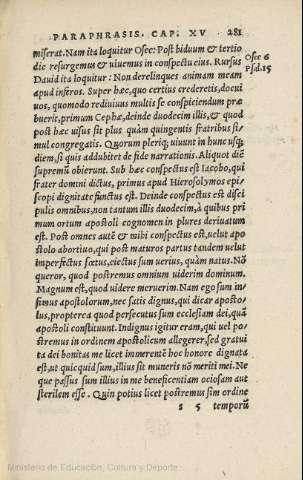 PARAPHRASIS. CAP. XV 281
miserat. Nam ita loquitur Osee: Post biduum & tertio
die resurgemus & uiuemus in conspectu eius. Rursus
Osee 6
Psal. 15
Dauid ita loquitur: Non derelinques animam meam
apud inferos. Super hæc, quo certius crederetis, docui
uos, quomodo rediuiuus multis se conspiciendum præ
buerit, primum Cephæ, deinde duodecim illis, & quod
post hæc uisus sit plus quàm quingentis fratribus si⸗
mul congregatis. Quorum pleriq; uiuunt in hunc usq;
diem, si quis addubitet de fide narrationis. Aliquot diē
supremū obierunt. Sub hæc conspectus est Iacobo, qui
frater domini dictus, primus apud Hierosolymos epi⸗
scopi dignitate functus est. Deinde conspectus est disci
pulis omnibus, non tantum illis duodecim, à quibus pri
mum ortum apostoli cognomen in plures deriuatum
est. Post omnes autē & mihi conspectus est, uelut apo
stolo abortiuo, qui post maturos partus tandem uelut
imperfectus fœtus, eiectus sum uerius, quàm natus. Nō
queror, quod postremus omnium uiderim dominum.
Magnum est, quod uidere meruerim. Nam ego sum in⸗
fimus apostolorum, nec satis dignus, qui dicar aposto⸗
lus, propterea quod persecutus sum ecclesiam dei, quā
apostoli constituunt. Indignus igitur eram, qui uel po⸗
stremus in ordinem apostolicum allegerer, sed gratui
ta dei bonitas me licet immerentē hoc honore dignata
est, ut quicquid sum, illius sit muneris nō meriti mei. Ne
que passus sum illius in me beneficentiam ociosam aut
sterilem esse. Quin potius licet postremus sim ordine
s 5 temporū
Ministerio de Educación, Cultura y Deporte